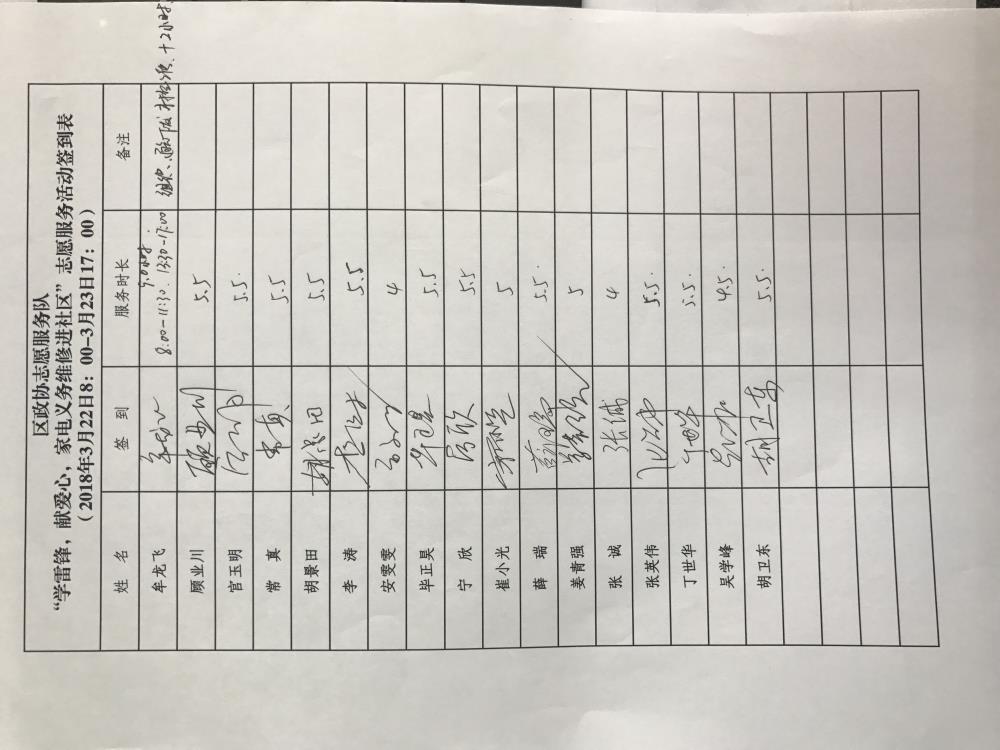 区政协志愿服务队
“学雷锋，献爱心，家电义务维修进社区”志愿服务活动签到表
（2018年3月22日8：00-3月23日17：00）
姓 名 签 到 服务时长 备注
牟龙飞 9.0小时 8:00-11:30. 13:30-17:00 +2小时
顾业川 5.5
官玉明 5.5.
常 真 常真 5.5
胡景田 胡景田 5.5
李 涛 5.5
安雯雯 4
毕正昊 5.5
宁 欣 宁欣 5.5
崔小光 5
薛 瑞 5.5.
姜青强 5
张 诚 张诚 4
张英伟 5.5.
丁世华 5.5.
吴学峰 4.5.
胡卫东 胡卫东 5.5.